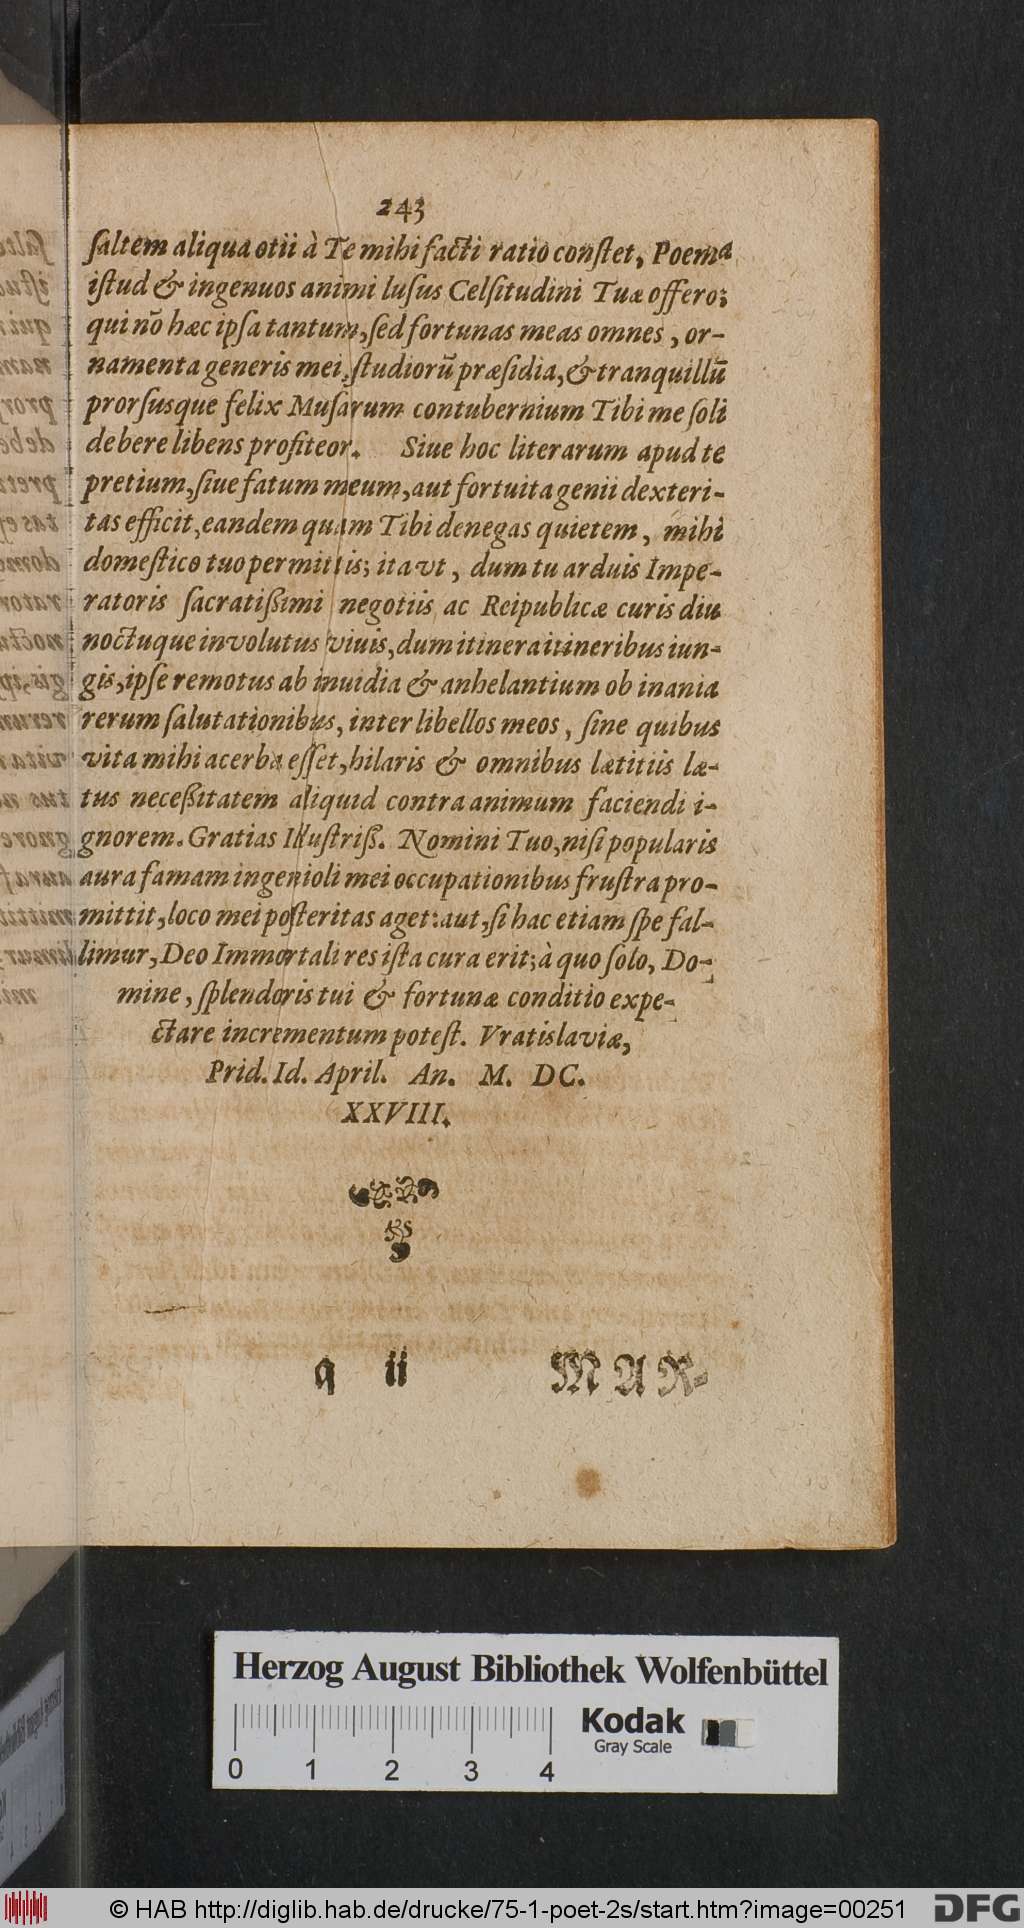 243
ſaltem aliqua otii à Te mihi facti ratio conſtet, Poema
iſtud & ingenuos animi luſus Celſitudini Tuæ offero;
qui nō hæc ipſa tantum, ſed fortunas meas omnes, or-
namenta generis mei, ſtudiorū præſidia, & tranquillū
prorſusque felix Muſarum contubernium Tibi me ſoli
debere libens profiteor. Siue hoc literarum apud te
pretium, ſiue fatum meum, aut fortuita genii dexteri-
tas efficit, eandem quam Tibi denegas quietem, mihi
domeſtico tuo permittis; ita vt, dum tu arduis Impe-
ratoris ſacratißimi negotiis ac Reipublicæ curis diu
noctuque involutus viuis, dum itinera itineribus iun-
gis, ipſe remotus ab inuidia & anhelantium ob inania
rerum ſalutationibus, inter libellos meos, ſine quibus
vita mihi acerba eſſet, hilaris & omnibus lætitiis læ-
tus neceßitatem aliquid contra animum faciendi i-
gnorem. Gratias Illuſtriſſ. Nomini Tuo, niſi popularis
aura famam ingenioli mei occupationibus fruſtra pro-
mittit, loco mei poſteritas aget: aut, ſi hac etiam ſpe fal-
limur, Deo Immortali res iſta cura erit; à quo ſolo, Do-
mine, ſplendoris tui & fortunæ conditio expe-
ctare incrementum poteſt. Vratislaviæ,
Prid. Id. April. An. M. DC.
XXVIII.
q ii MAR-
Herzog August Bibliothek Wolfenbüttel
Kodak
Gray Scale
0 1 2 3 4
© HAB http://diglib.hab.de/drucke/75-1-poet-2s/start.htm?image=00251 DFG